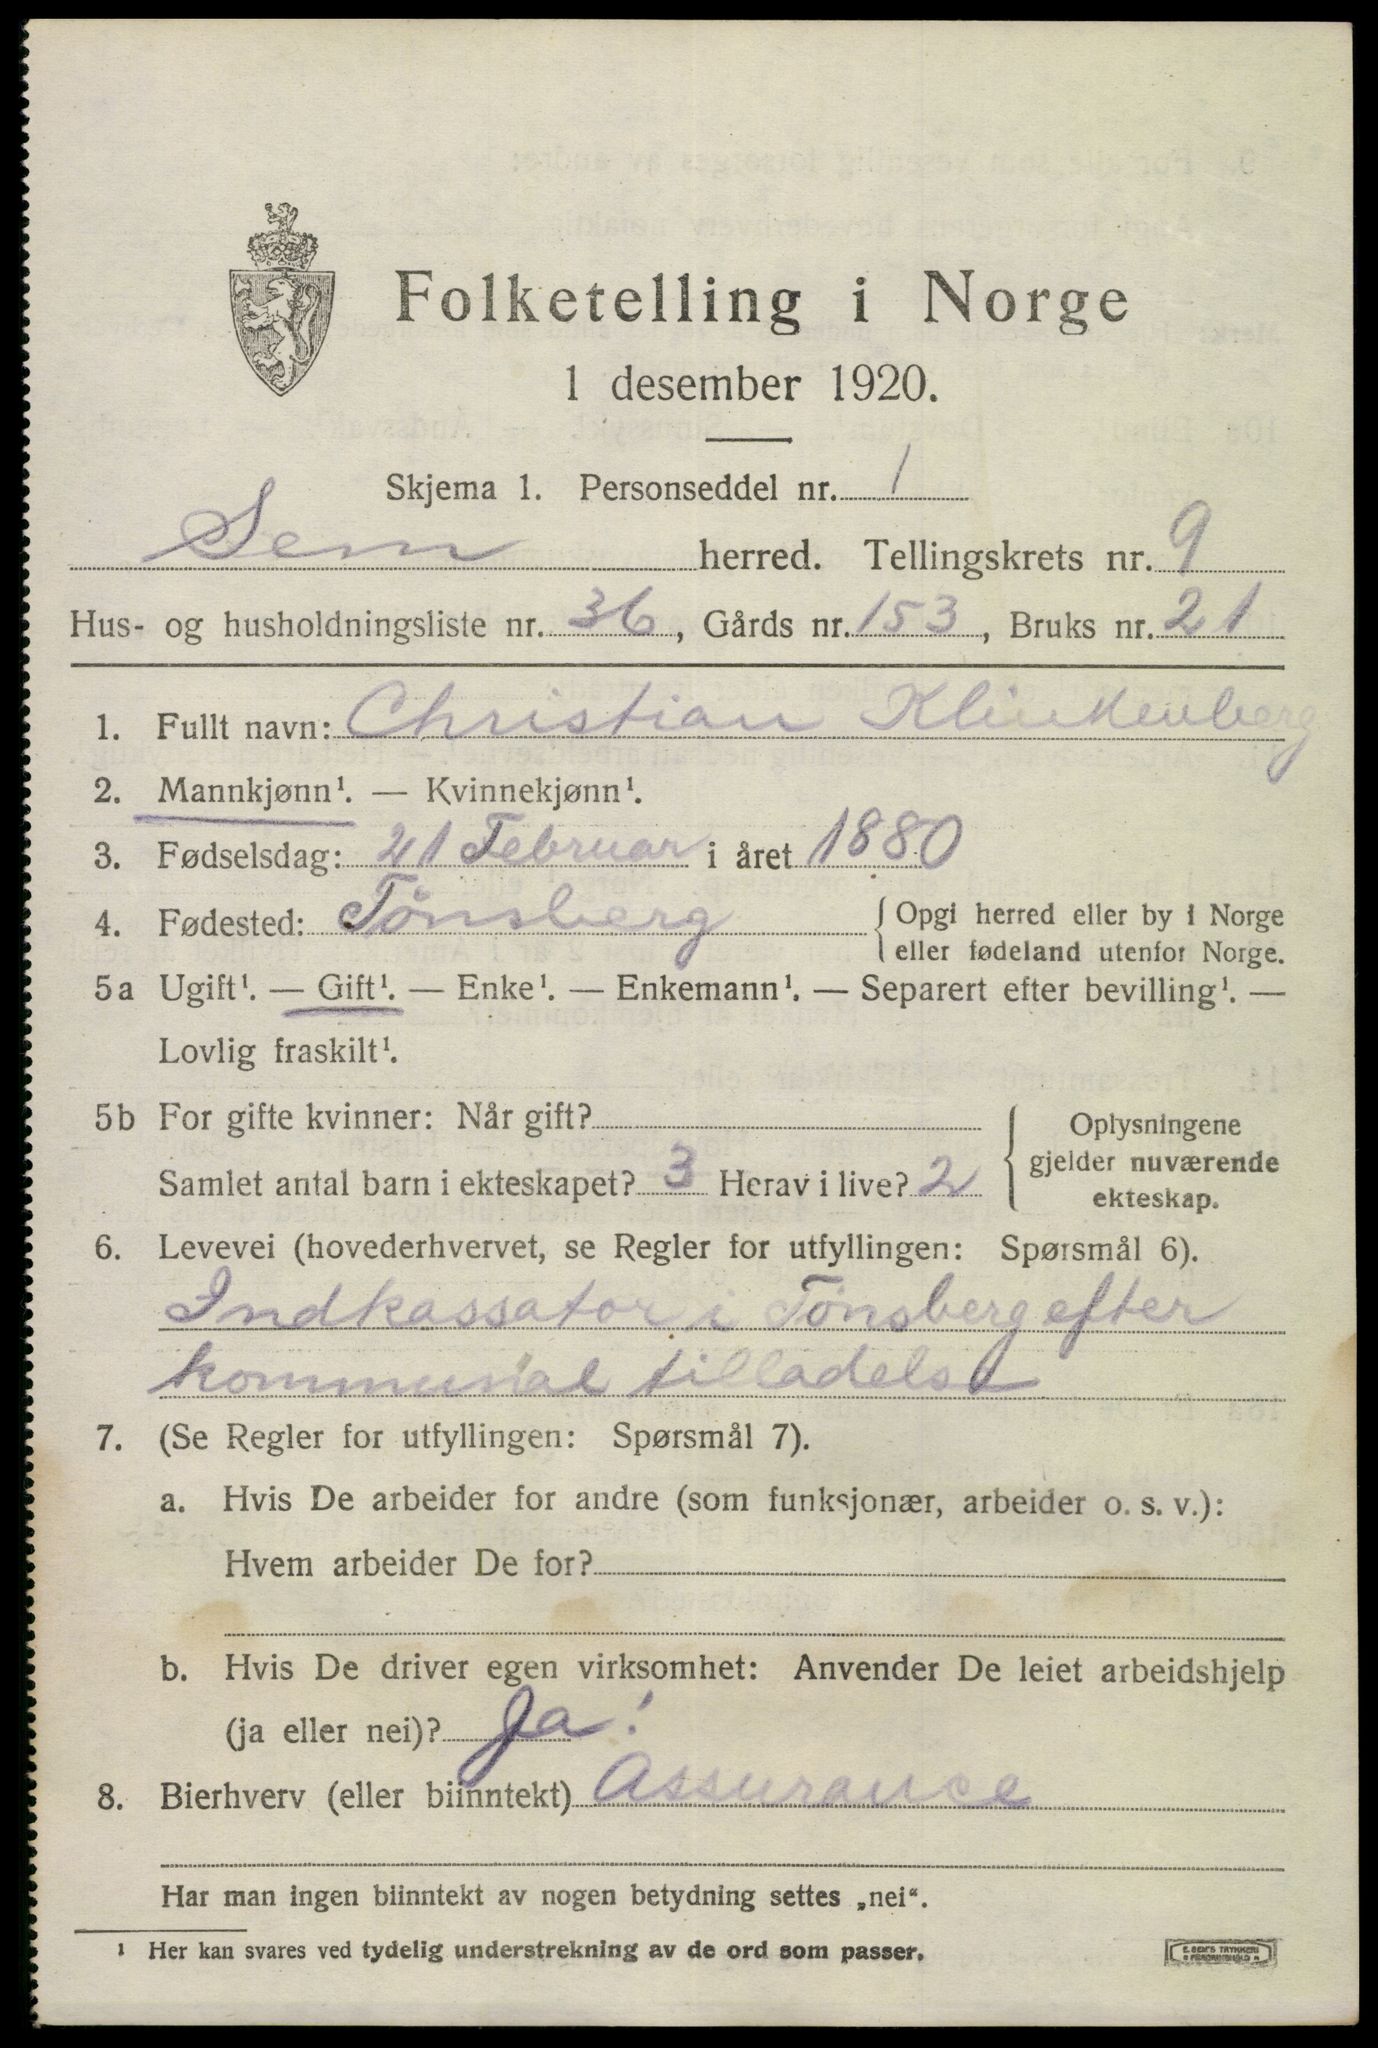 Folketelling i Norge
1 desember 1920.
Skjema 1. Personseddel nr. 1
Sem herred. Tellingskrets nr. 9
Hus- og husholdningsliste nr. 36, Gårds nr. 153, Bruks nr. 21
1. Fullt navn: Christian Klinkenberg
2. Mannkjønn¹. — Kvinnekjønn¹.
3. Fødselsdag: 21 Februar i året 1880
4. Fødested: Tönsberg { Opgi herred eller by i Norge
eller fødeland utenfor Norge.
5a Ugift¹. — Gift¹. — Enke¹. — Enkemann¹. — Separert efter bevilling¹. —
Lovlig fraskilt¹.
5b For gifte kvinner: Når gift?
Samlet antal barn i ekteskapet? 3 Herav i live? 2
Oplysningene
gjelder nuværende
ekteskap.
6. Levevei (hovederhvervet, se Regler for utfyllingen: Spørsmål 6).
Indkassator i Tönsberg efter
kommunal tilladelse
7. (Se Regler for utfyllingen: Spørsmål 7).
a. Hvis De arbeider for andre (som funksjonær, arbeider o. s. v.):
Hvem arbeider De for?
b. Hvis De driver egen virksomhet: Anvender De leiet arbeidshjelp
(ja eller nei)? Ja!
8. Bierhverv (eller biinntekt) Assurance
Har man ingen biinntekt av nogen betydning settes „nei“.
¹ Her kan svares ved tydelig understrekning av de ord som passer.